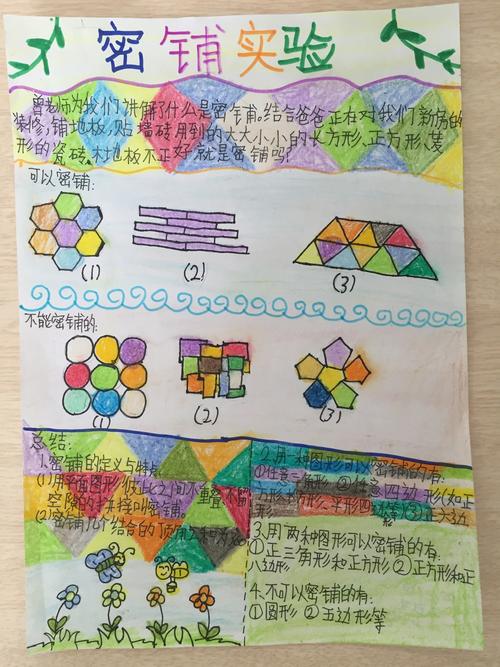 密铺实验
曾老师为我们讲解了什么是密铺。结合爸爸正在对我们新房的
装修，铺地板，贴墙砖用到的大大小小的长方形、正方形、菱
形的瓷砖、木地板不正好就是密铺吗？
可以密铺：
(1)
(2)
(3)
不能密铺的：
(1)
(2)
(3)
总结：
1.密铺的定义与特点
(1)用平面图形彼此之间不重叠不留
空隙的
(2)密铺几个结合的顶角之和为360
2.用一种图形可以密铺的有：
①任意三角形 ②任意四边形(如正
③正六边
3.用两种图形可以密铺的有：
①正三角形和正方形 ②正方形和正
八边形
4.不可以密铺的有：
①圆形 ②五边形等